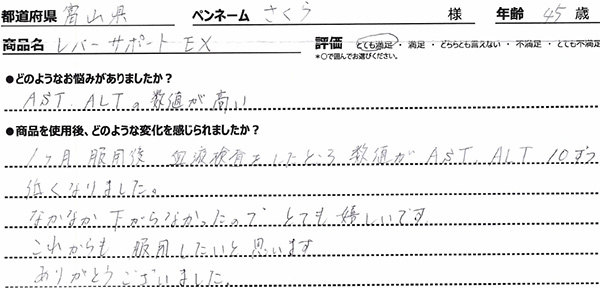 都道府県 富山県 ペンネーム さくら 様 年齢 45 歳
商品名 レバーサポートEX 評価 とても満足・満足・どちらとも言えない・不満足・とても不満足
*○で囲んでお選びください。
●どのようなお悩みがありましたか？
AST、ALTの数値が高い
●商品を使用後、どのような変化を感じられましたか？
1ヶ月服用後 血液検査をしたところ 数値が AST、ALT 10ずつ
低くなりました。
なかなか下がらなかったので とても嬉しいです
これからも 服用したいと思います
ありがとうございました。